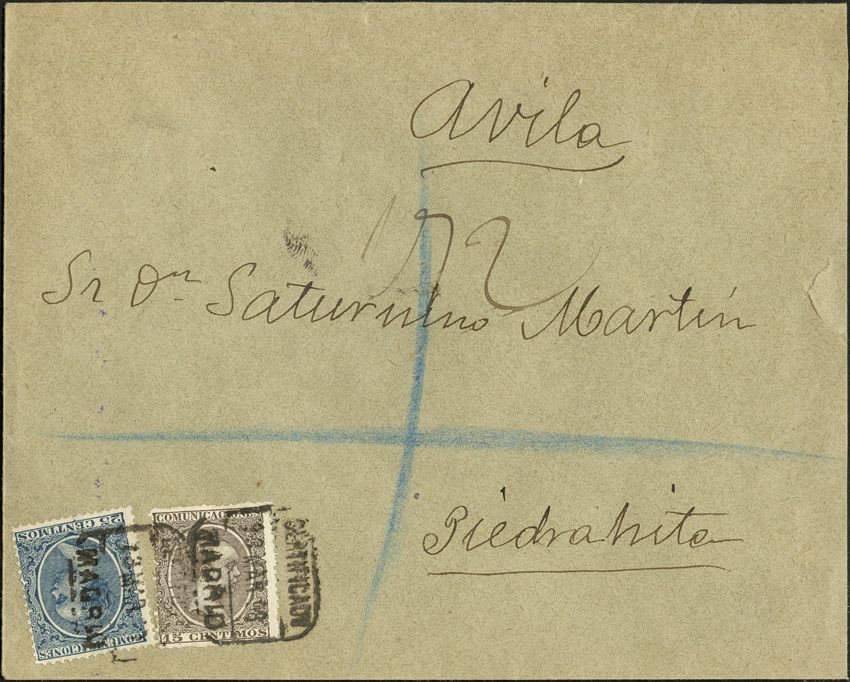 Avila
172
Sr Dn Saturnino Martin
Piedrahita
25 CENTIMOS
COMUNICACIONES
MADRID
COMUNICACIONES
15 CENTIMOS
MADRID
CERTIFICADO
MAR